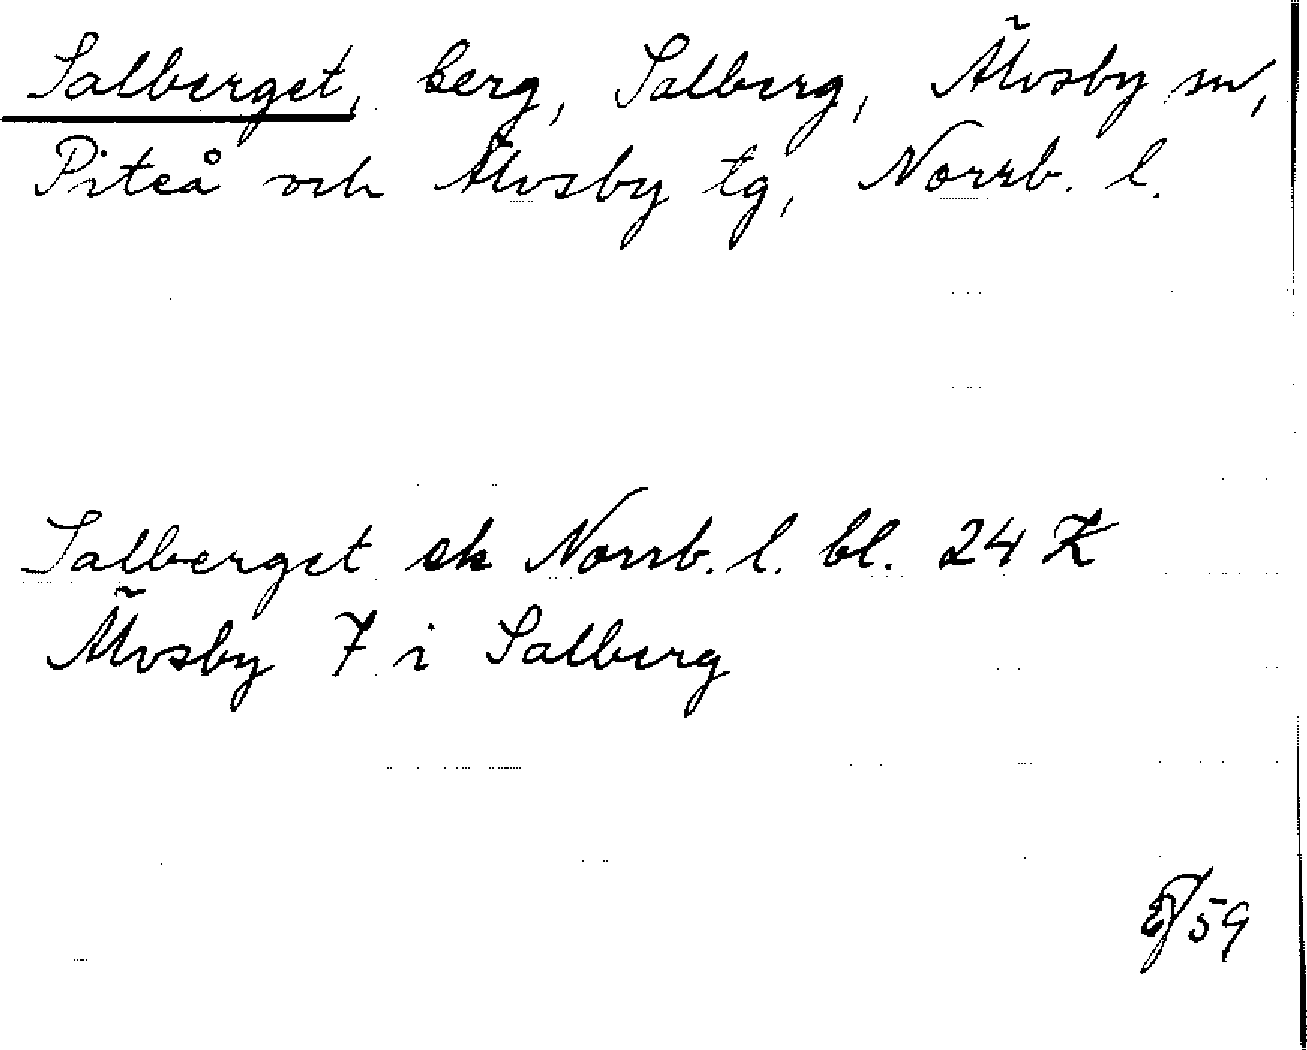 Salberget, berg, Salberg, Älvsby sn,
Piteå och Älvsby tg, Norrb. l.
Salberget ek Norrb. l. bl. 24 K
Älvsby 7 i Salberg
59